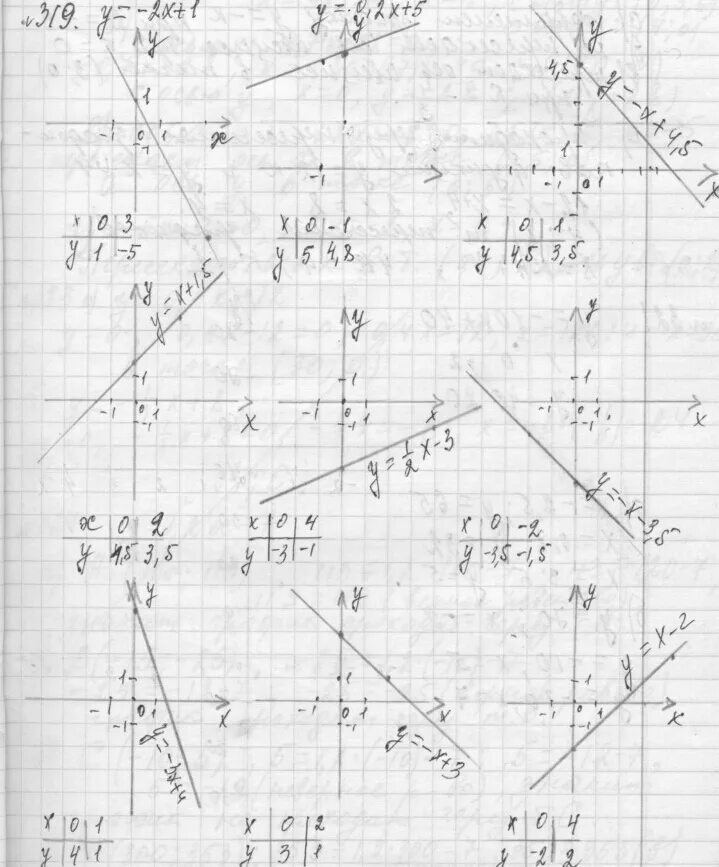 №319. y = -2x+1
y = 0,2x+5
y
1
-1 0 1
-1
x
x | 0 | 3
y | 1 | -5
y
-1
x | 0 | -1
y | 5 | 4,8
y
4,5
y = -x+4,5
1
-1 0 1
x
x | 0 | 1
y | 4,5 | 3,5
y
y = x+1,5
1
-1 0 1
-1
x
x | 0 | 2
y | 1,5 | 3,5
y
1
-1 0 1
-1
x
y = 1/2 x-3
x | 0 | 4
y | -3 | -1
y
1
-1 0 1
-1
x
y = -x-3,5
x | 0 | -2
y | -3,5 | -1,5
y
1
-1 0 1
-1
x
y = -3x+4
x | 0 | 1
y | 4 | 1
y
1
-1 0 1
-1
x
y = -x+3
x | 0 | 2
y | 3 | 1
y
1
-1 0 1
-1
x
y = x-2
x | 0 | 4
y | -2 | 2